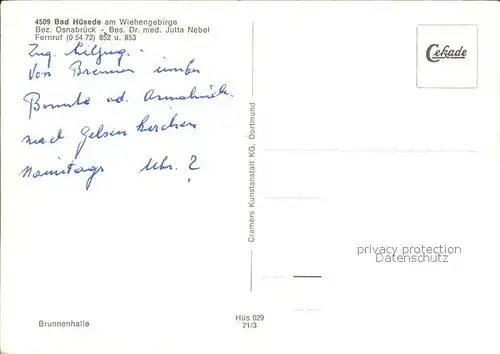 4509 Bad Hüsede am Wiehengebirge
Bez. Osnabrück - Bes. Dr. med. Jutta Nebel
Fernruf (0 54 72) 852 u. 853
Zug.
Von Bremen
od. Osnabrück.
nach Gelsenkirchen
Uhr. ?
Cekade
Cramers Kunstanstalt KG, Dortmund
privacy protection
AnsichtskartenVersand.com
Brunnenhalle
Hüs 029
71/3